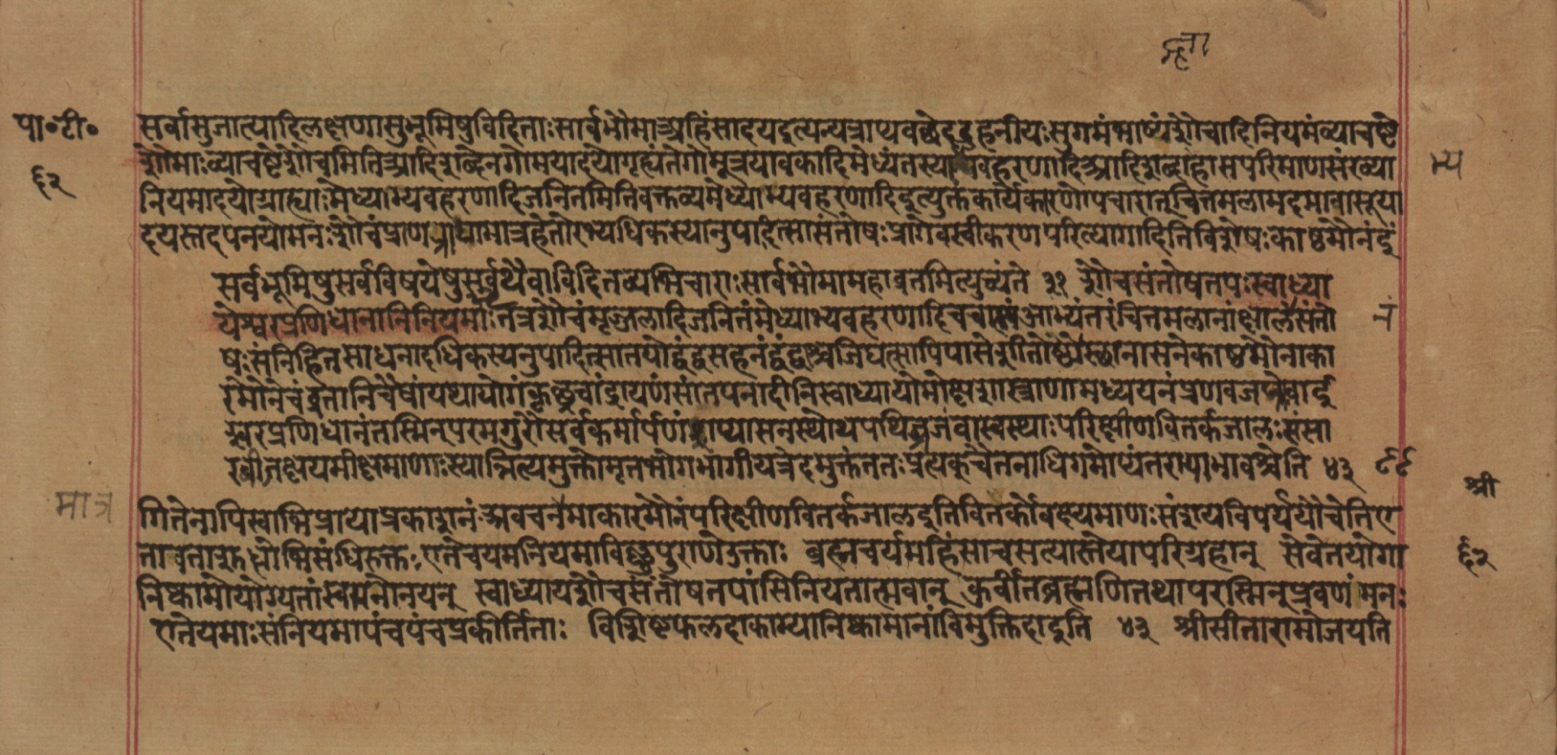 पा॰टी॰
६२
सर्वासुजात्यादिलक्षणासुभूमिषुविदिताःसार्वभौमाअहिंसादयइत्यन्यत्राप्यवच्छेदइहनीयःसुगमंभाष्यंशौचादिनियमंव्याचष्टे
शौमाःव्याचष्टेशौचमितिआदिशब्देनगोमयादयोगृह्यंतेगोमूत्रयावकादिमेध्यंतस्याभ्यवहरणादिआदिशब्दाद्ग्रासपरिमाणसंख्या
नियमादयोग्राह्याःमेध्याभ्यवहरणादिजनितमितिवक्तव्यमेध्याभ्यवहरणादिइत्युक्तंकार्येकारणोपचारात्चित्तमलामदमानासूया
दयस्तदपनयोमनःशौचंप्राणयात्रामात्रहेतोरभ्यधिकस्यानुपादित्सासंतोषःप्रागेवस्वीकरणपरित्यागादितिविशेषःकाष्ठमौनंइं
सर्वभूमिषुसर्वविषयेषुसर्वथैवाविदितव्यभिचाराःसार्वभौमामहाव्रतमित्युच्यंते ३१ शौचसंतोषतपःस्वाध्या
येश्वरप्रणिधानानिनियमाःतत्रशौचंमृज्जलादिजनितंमेध्याभ्यवहरणादिचबाह्यंआभ्यंतरंचित्तमलानांक्षालनंसंतो
षःसंनिहितसाधनादधिकस्यनुपादित्सातपोद्वंद्वसहनंद्वंद्वाश्चजिघत्सापिपासेशीतोष्णेस्थानासनेकाष्ठमौनाका
रमौनेचव्रतानिचैषांयथायोगंकृछ्रचांद्रायणसांतपनादीनिस्वाध्यायोमोक्षशास्त्राणामध्ययनंप्रणवजपोवाई
श्वरप्रणिधानंतस्मिन्परमगुरौसर्वकर्मार्पणंशय्यासनस्थोथपथिव्रजंवास्वस्थःपरिक्षीणवितर्कजालःसंसा
रबीजक्षयमीक्षमाणःस्यान्नित्यमुक्तोमृतभोगभागीयत्रेदमुक्तंततःप्रत्यक्चेतनाधिगमोप्यंतरायाभावश्चेति ४३
श्री
मात्र
गितेनापिस्वाभिप्रायाप्रकाशनंअवचनमाकारमौनंपरिक्षीणवितर्कजालइतिवितर्कोवक्ष्यमाणःसंशयविपर्ययौचेतिए
तावताशुद्धोभिसंधिरुक्तःएतेचयमनियमाविष्णुपुराणेउक्ताः ब्रह्मचर्यमहिंसाचसत्यास्तेयापरिग्रहान् सेवेतयोगी
निष्कामोयोग्यतांस्वमनोनयन् स्वाध्यायशौचसंतोषतपांसिनियतात्मवान् कुर्वीतब्रह्मणितथापरस्मिन्प्रवणंमनः
एतेयमाःसनियमापंचपंचप्रकीर्तिताः विशिष्टफलदाकाम्यानिष्कामानांविमुक्तिदाइति ४३ श्रीसीतारामोजयति
६२